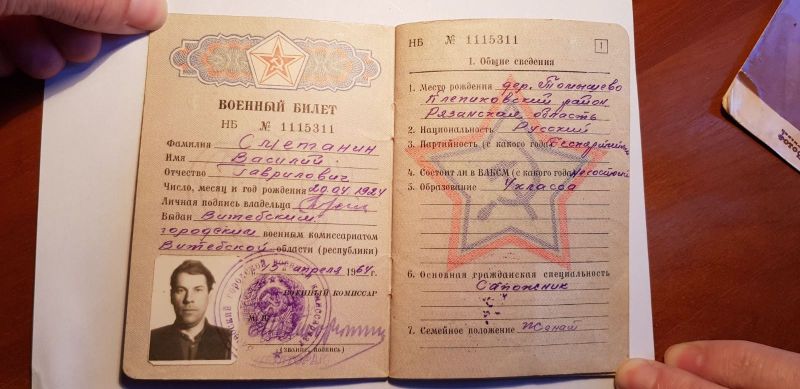 ВОЕННЫЙ БИЛЕТ
НБ № 1115311
Фамилия Сметанин
Имя Василий
Отчество Гаврилович
Число, месяц и год рождения 20.04.1924
Личная подпись владельца
Выдан Витебским
городским военным комиссариатом
Витебской области (республики)
апреля 1964 г.
ВОЕННЫЙ КОМИССАР
(звание, подпись)
НБ № 1115311
1
I. Общие сведения
1. Место рождения дер.
Клепиковский район
Рязанская область
2. Национальность Русский
3. Партийность (с какого года) беспартийный
4. Состоит ли в ВЛКСМ (с какого года) не состоит
5. Образование 4 класса
6. Основная гражданская специальность
Сапожник
7. Семейное положение Женат